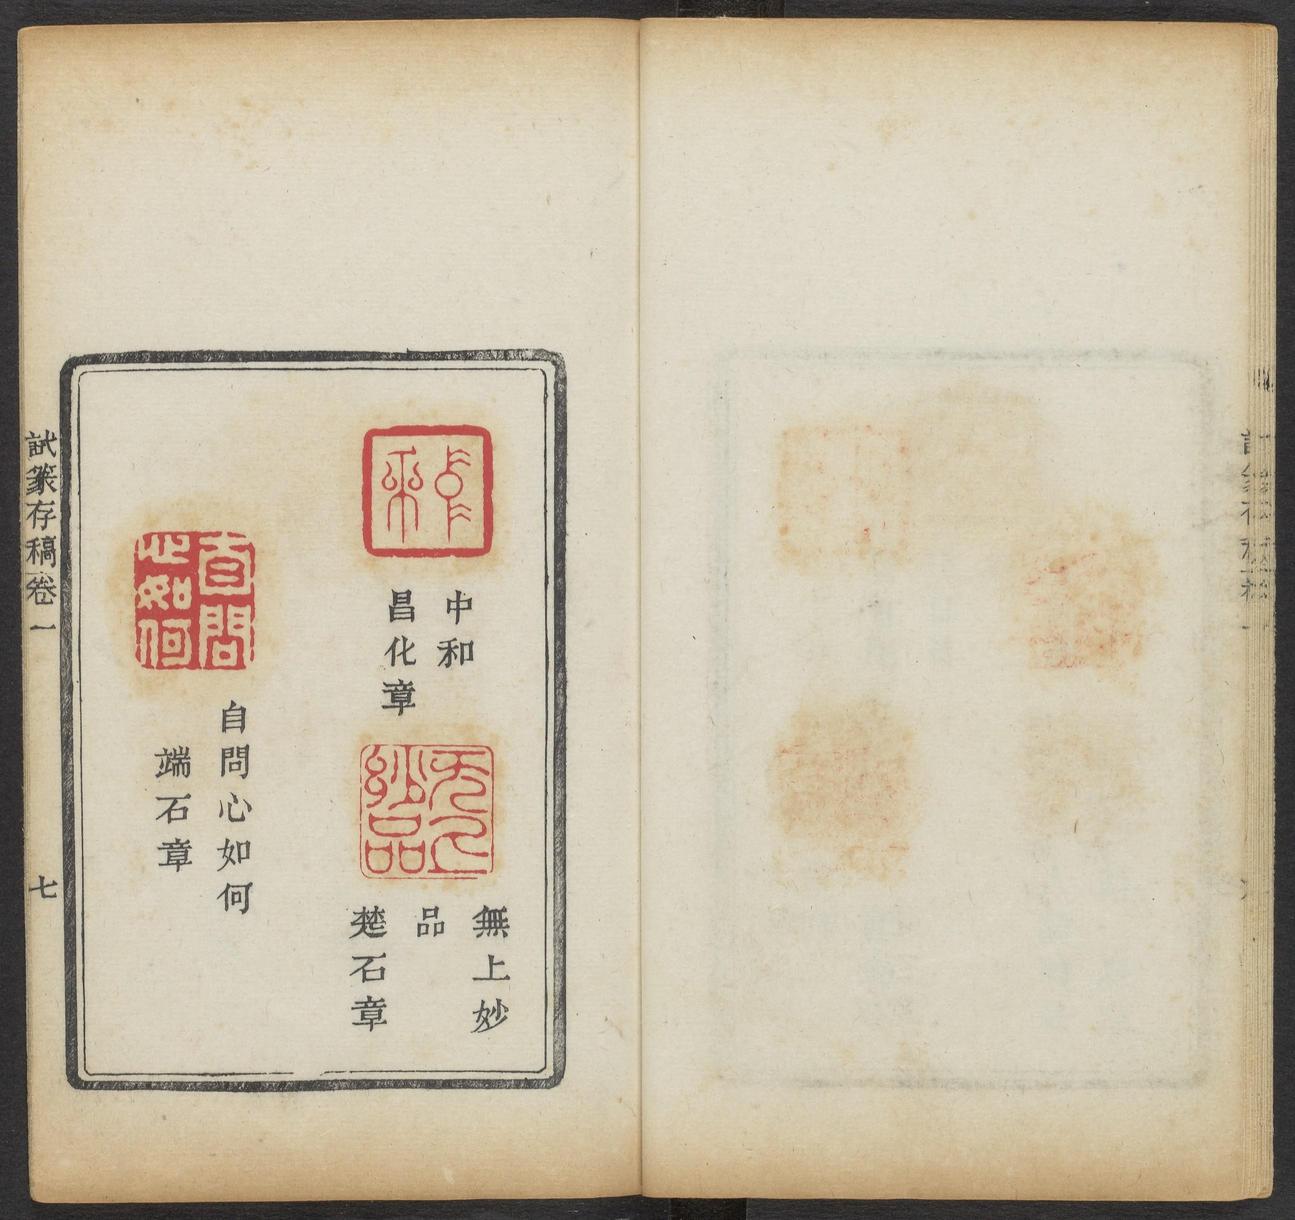 中和
昌化章
無上妙
品
楚石章
自問心如何
端石章
試篆存稿卷一
七